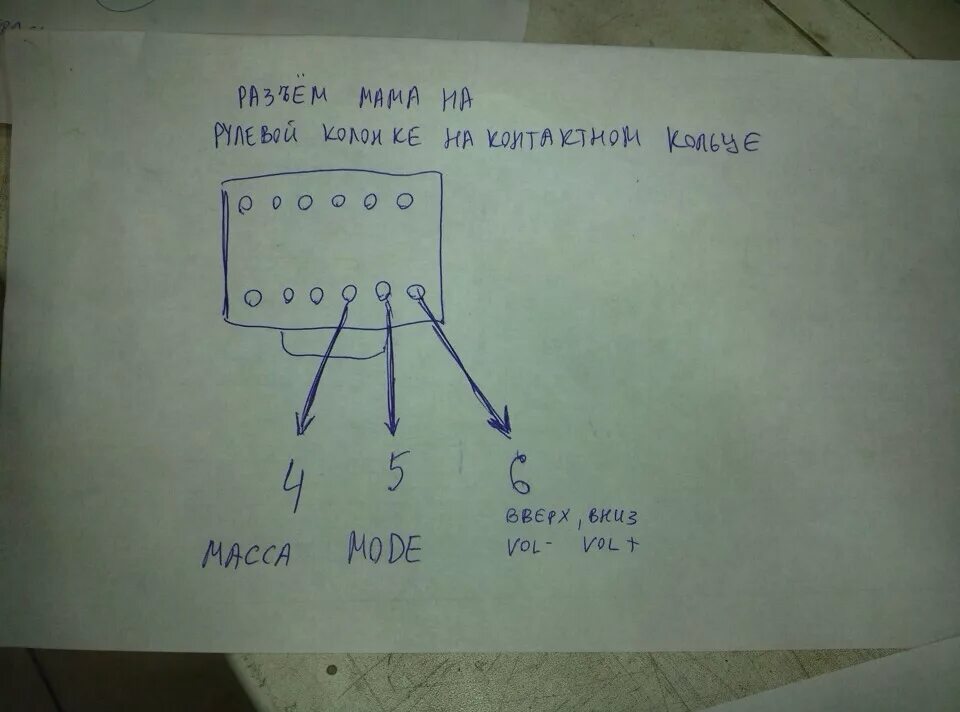 РАЗЪЁМ МАМА НА
РУЛЕВОЙ КОЛОНКЕ НА КОНТАКТНОМ КОЛЬЦЕ
4 5 6
ВВЕРХ, ВНИЗ
МАССА MODE VOL- VOL+